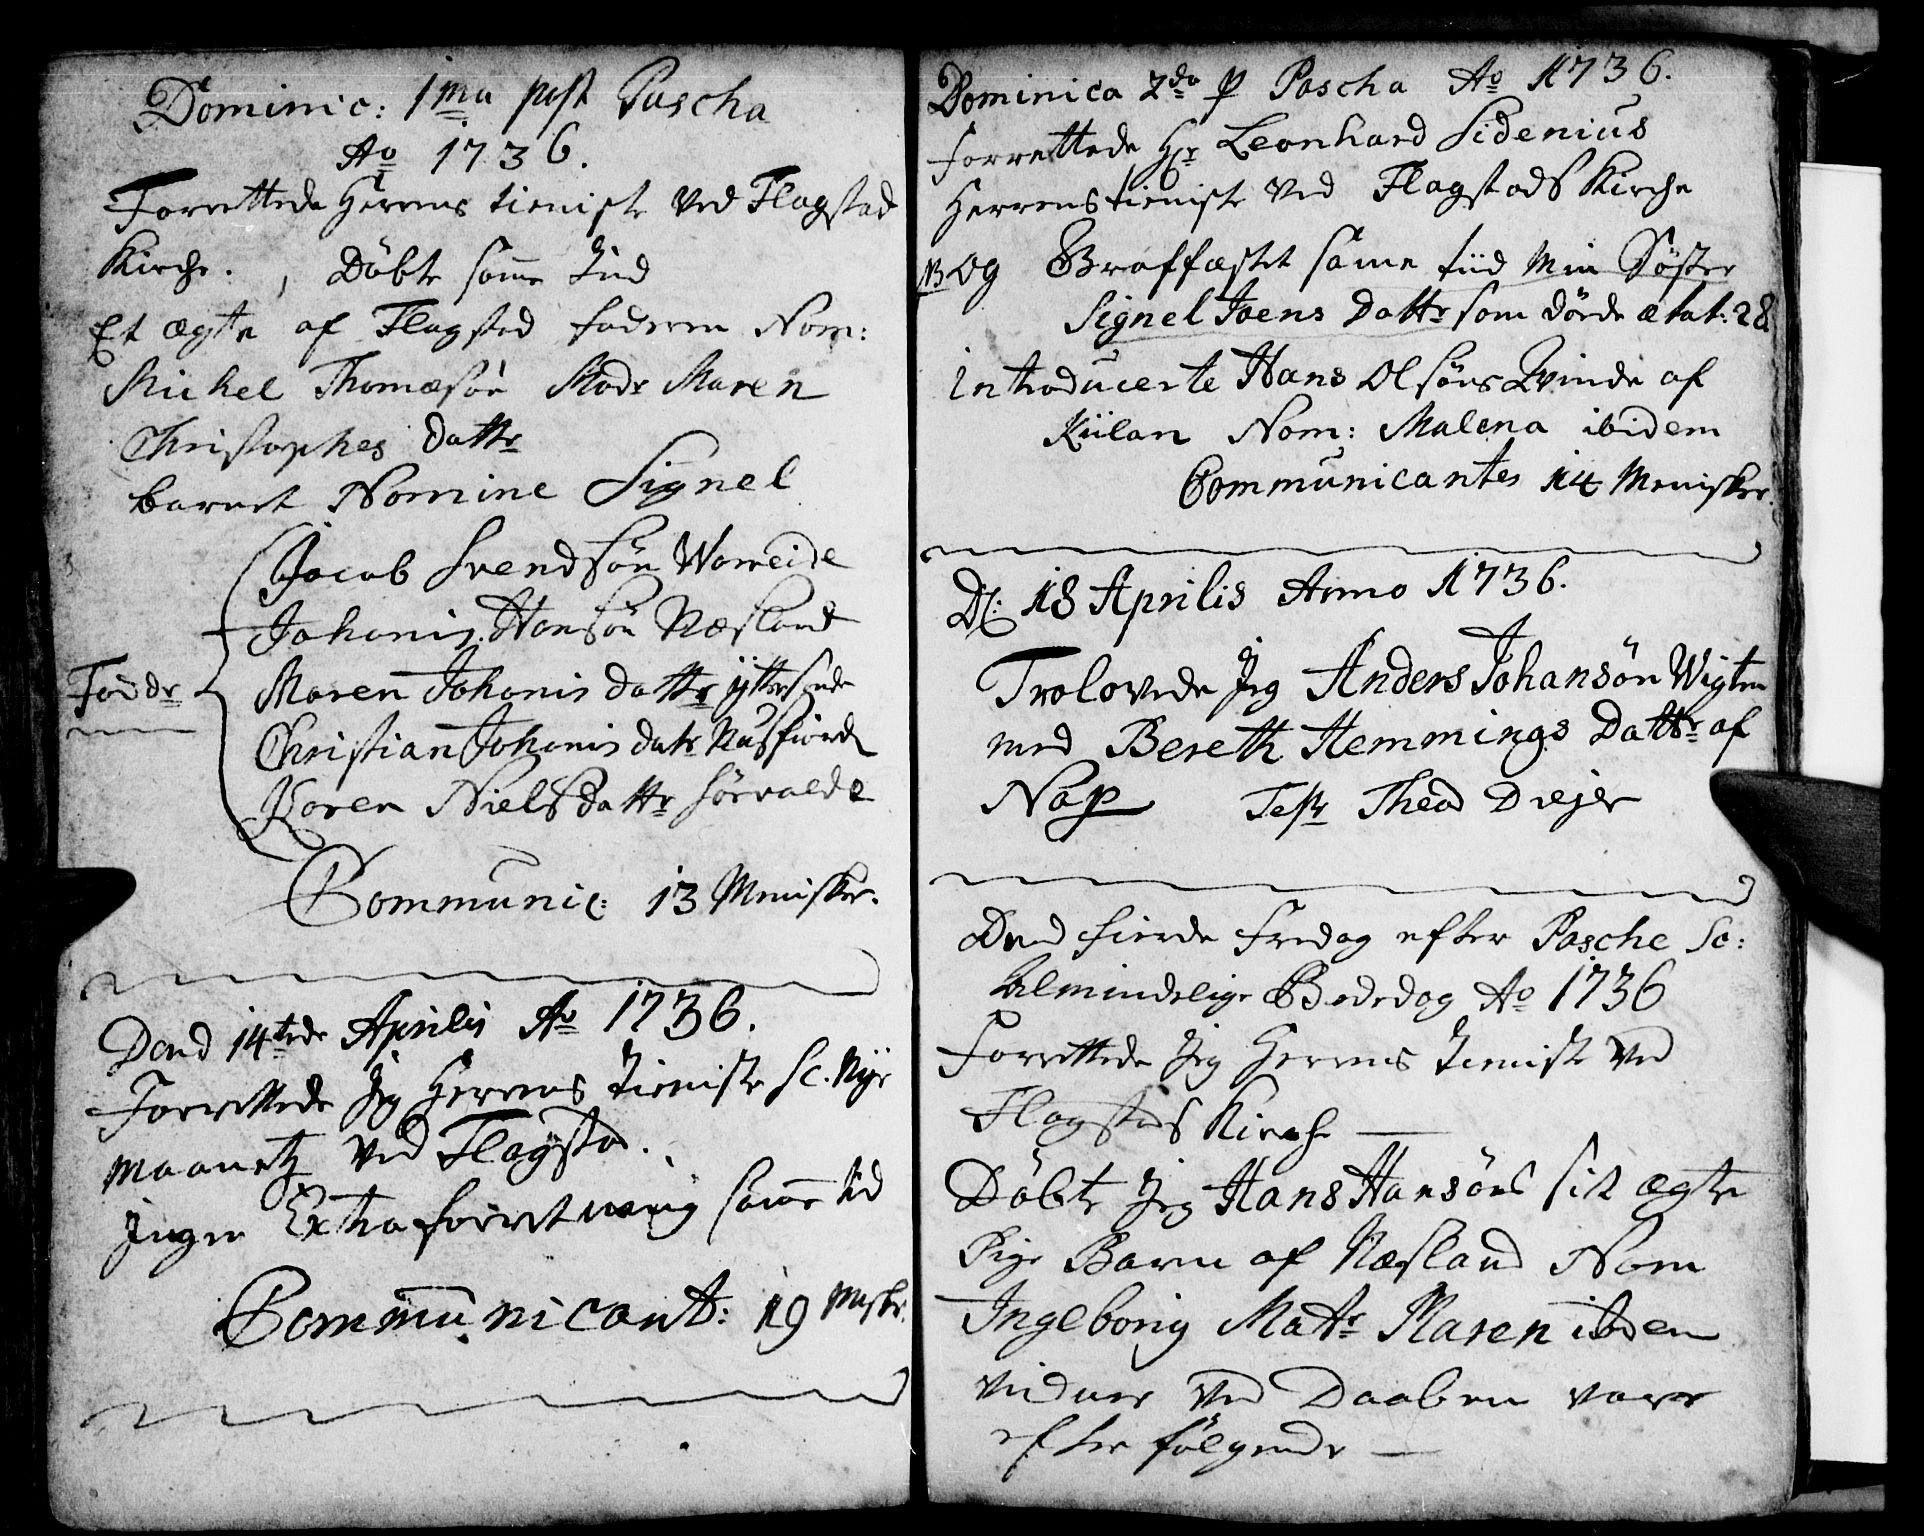 Dominic: 1ma post Pascha
Ao 1736.
Forrettede Herrens tieniste ved Flagstad
Kirche. , Döbte samme Tiid
Et ægte af Flagstad faderen Nom:
Michel Thomæsön Modr Maren
Christophes Dattr
barnet Nomine Signel
Jacob Svendsön Wareide
Johanis Hansön Næsland
Fadr Maren Johanis dattr ÿttersande
Christian Johanis datr Nusfiord
Karen Nielsdattr Sörvalde
Communic: 13 Menisker.
Dend 14tede Aprilis Ao 1736.
Forrettede Jeg Herrens tieniste Sc. Nye
Maanetz ved Flagstad.
Ingen Extra forretning samme tid
Communicant: 19 Mskr.
Dominica 2da p Pascha Ao 1736.
Forrettede Hr Leonhard Sidenius
Herrens tieniste ved Flagstads Kirche
NB og Graffæstet same tiid Min Söster
Signel Joens Dattr som döede ætat: 28
Introducerte Hans Olsöns Qvinde af
Kiilan Nom: Malena ibidem
Communicantes 14 Menisker.
D: 18 Aprilis Anno 1736.
Trolovede Jeg Anders Johansön Wigten
med Bereth Hemmings Dattr af
Nap Testr Thead Drejer
Dend fierde Fredag efter Pasche Sc:
Almindelige Bededag Ao 1736
Forrettede Jeg Herrens tieniste ved
Flagstads Kirche
Döbte Jeg Hans Hansöns sit ægte
Pige Barn af Næsland Nom
Ingeborig Mattr Maren ibidem
vidner ved Daaben vare
efterfölgende